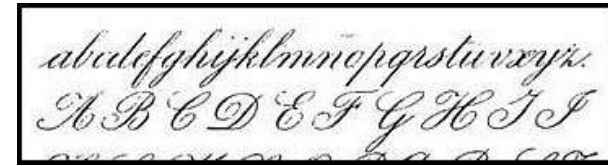 abcdefghijklmnñopqrstuvxyz.
A B C D E F G H I J